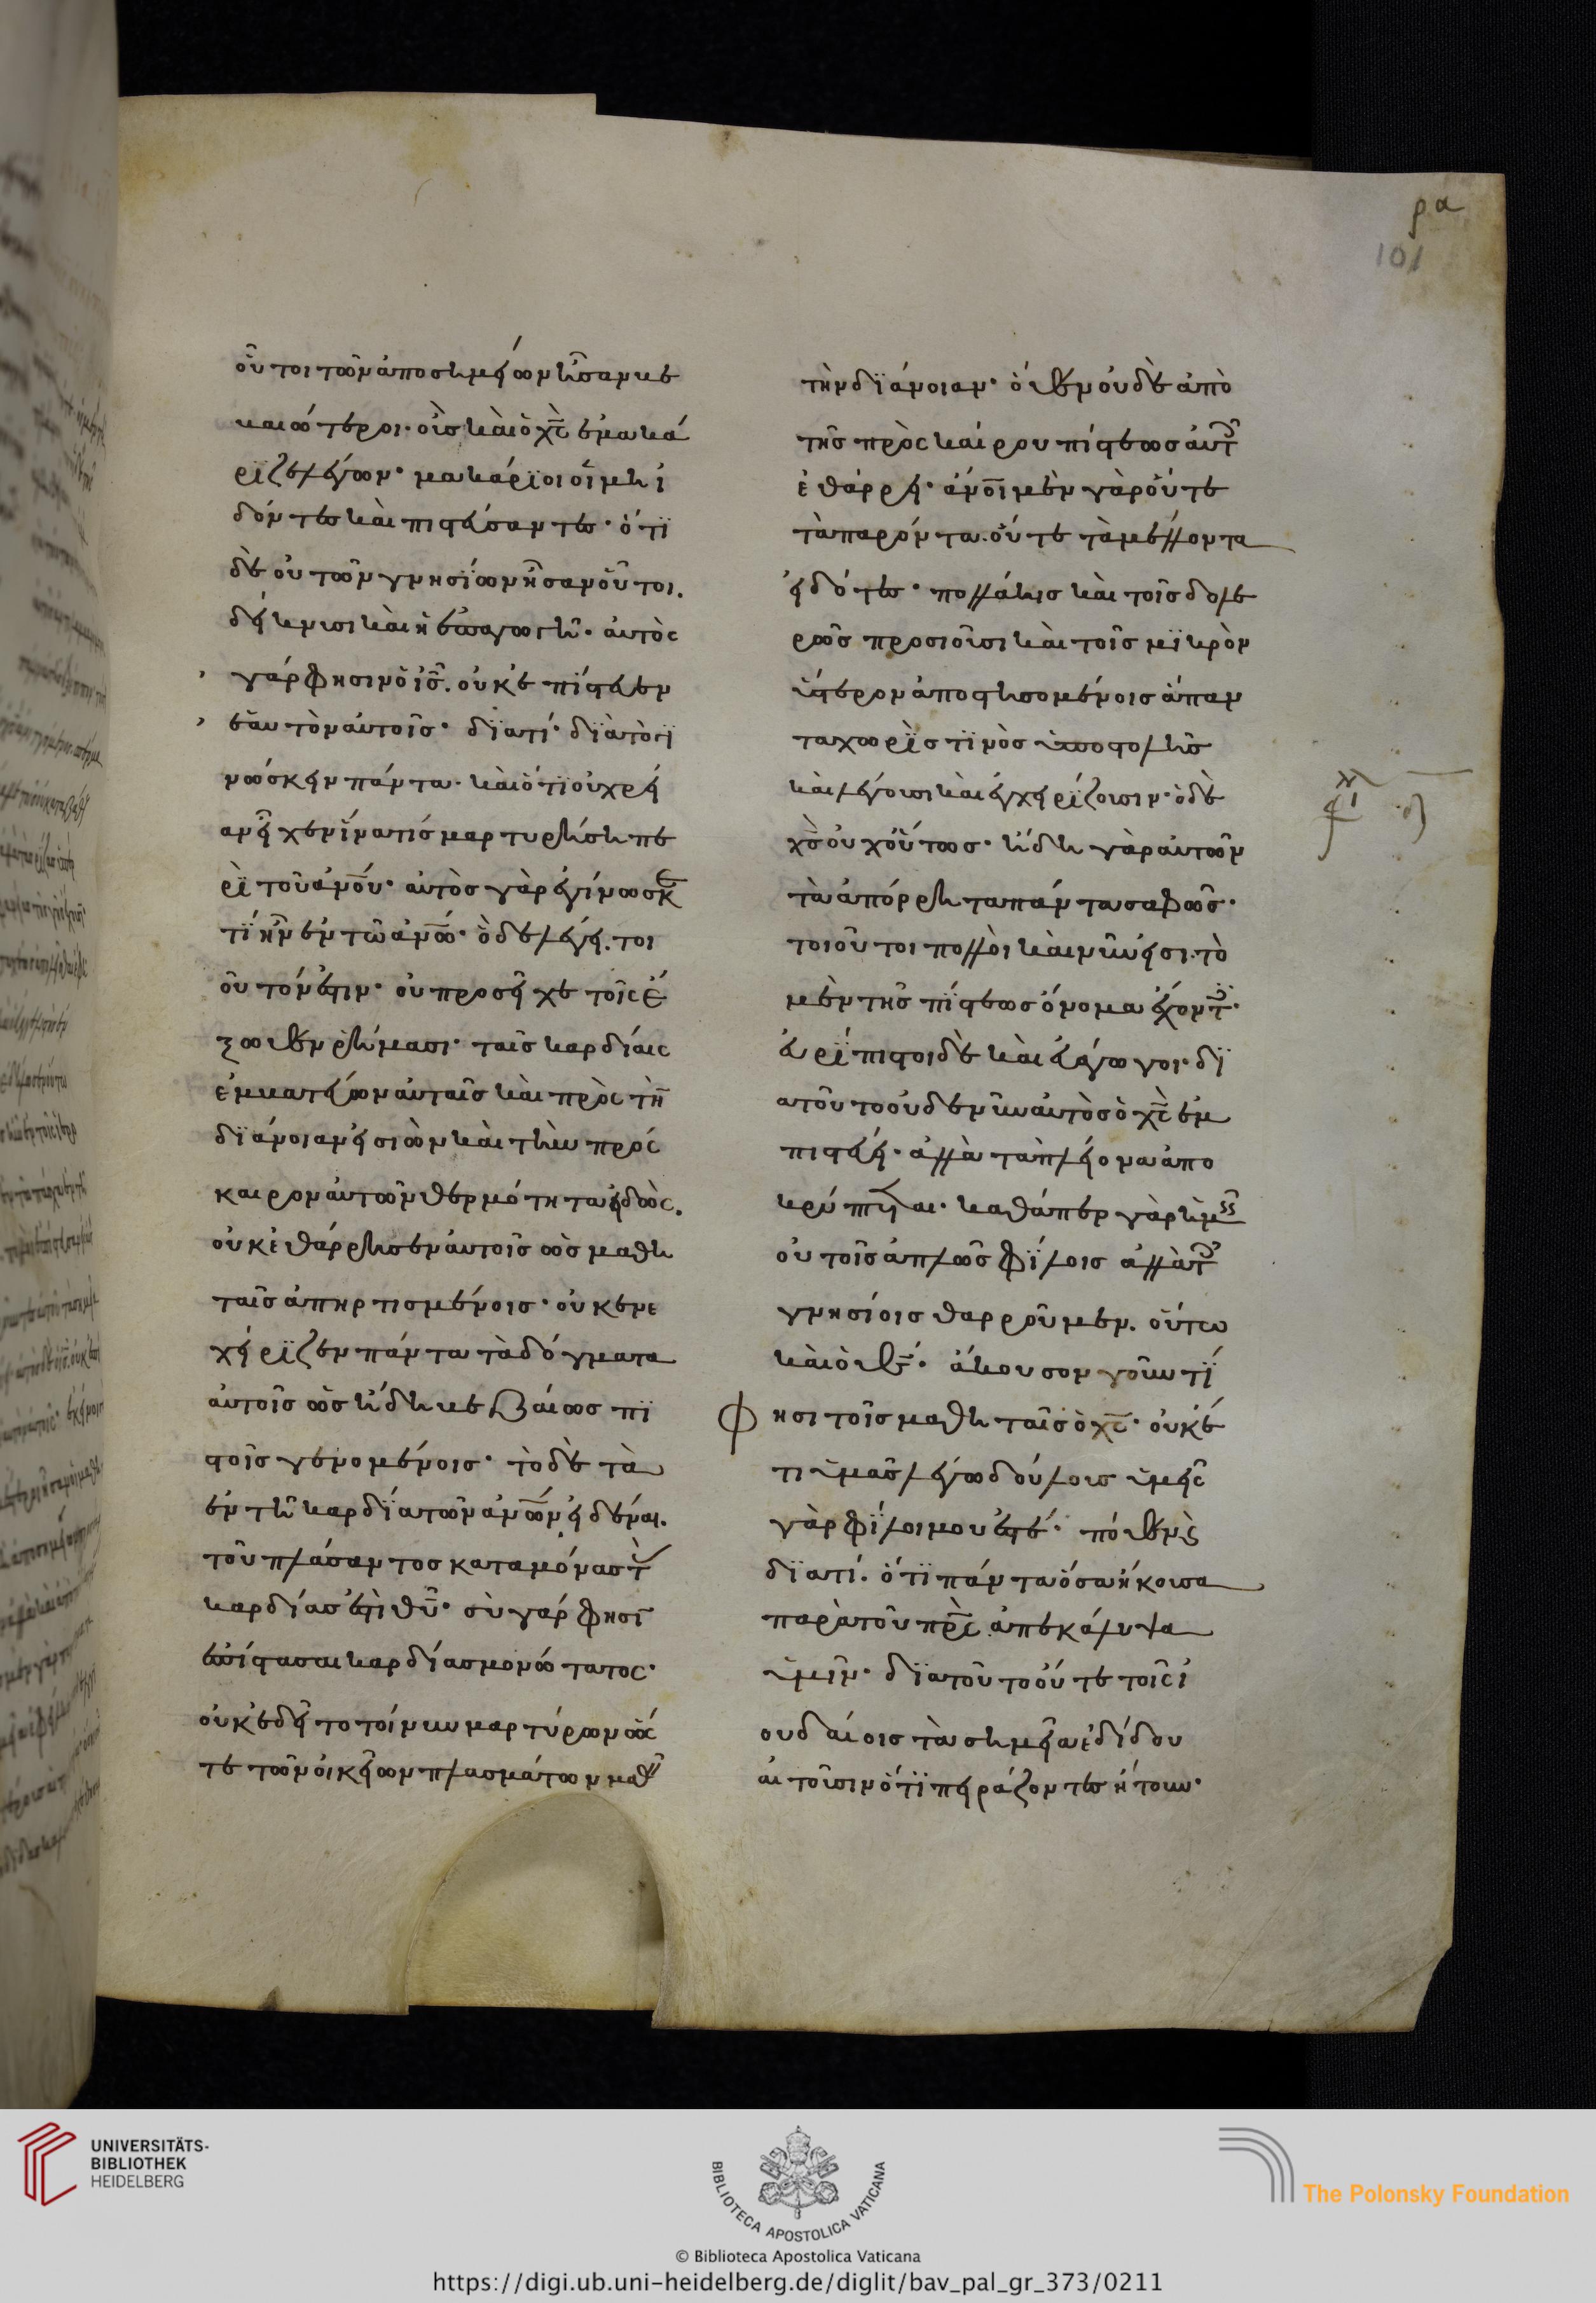 ρα
101
οὗτοι τῶν ἀπὸ σημείων ἦσαν βε
βαιώτεροι· οὓς καὶ ὁ χς ἐμακά
ριζε λέγων· μακάριοι οἱ μὴ ἰ
δόντες καὶ πιστεύσαντες· ὅτι
δὲ οὐ τῶν γνησίων ἦσαν οὗτοι.
δείκνυσι καὶ ἡ ἐπαγωγή· αὐτὸς
γάρ φησιν ὁ ις. οὐκ ἐπίστευεν
ἑαυτὸν αὐτοῖς· διατί· διὰ τὸ γι
νώσκειν πάντα· καὶ ὅτι οὐ χρεί
αν εἶχεν ἵνα τίς μαρτυρήση πε
ρὶ τοῦ ἀνου· αὐτὸς γὰρ ἐγίνωσκε
τί ἦν ἐν τῶ ἀνω· ὃ δὲ λέγει. τοι
οῦτόν ἐστιν· οὐ προσεῖχε τοῖς ἔ
ξωθεν ῥήμασι· ταῖς καρδίαις
ἐμβατεύων αὐταῖς καὶ πρὸς τὴν
διάνοιαν εἰσιὼν καὶ τὴν πρόσ
καιρον αὐτῶν θερμότητα εἰδώς.
οὐκ ἐθάρρησεν αὐτοῖς ὡς μαθη
ταῖς ἀπηρτισμένοις· οὐκ ἐνε
χείριζεν πάντα τὰ δόγματα
αὐτοῖς ὡς ἤδη βεβαίως πι
στοῖς γενομένοις· τὸ δὲ τὰ
ἐν τῆ καρδία τῶν ἀνων εἰδέναι.
τοῦ πλάσαντος καταμόνας τὰς
καρδίας ἐστὶ θυ· σὺ γάρ φησι
ἐπίστασαι καρδίας μονώτατος·
οὐκ ἐδεῖτο τοίνυν μαρτύρων ὥσ
τε τῶν οἰκείων πλασμάτων μαθεῖν
τὴν διάνοιαν· ὅθεν οὐδὲ ἀπὸ
τῆς πρὸς καίρου πίστεως αὐτοῖς
ἐθάρρει· ἄνοι μὲν γὰρ οὔτε
τὰ παρόντα. οὔτε τὰ μέλλοντα
εἰδότες· πολλάκις καὶ τοῖς δολε
ρῶς προσιοῦσι καὶ τοῖς μικρὸν
ὕστερον ἀποστησομένοις ἅπαν
τα χωρίς τινὸς ὑποστολῆς
καὶ λέγουσι καὶ ἐγχειρίζουσιν· ὁ δὲ
χς οὐχ οὕτως· ἤδει γὰρ αὐτῶν
τὰ ἀπόρρητα πάντα σαφῶς·
τοιοῦτοι πολλοὶ καὶ νῦν εἰσι. τὸ
μὲν τῆς πίστεως ὄνομα ἔχοντες·
εὐρίπιστοι δὲ καὶ εὐάγωγοι· δι
ατοῦτο οὐδὲ νῦν αὐτὸς ὁ χς ἐμ
πιστεύει· ἀλλὰ τὰ πλείονα ἀπο
κρύπτεται· καθάπερ γὰρ ἡμεῖς
οὐ τοῖς ἁπλῶς φίλοις ἀλλὰ τοῖς
γνησίοις θαρροῦμεν. οὕτω
καὶ ὁ θς· ἄκουσον γοῦν τί
φησι τοῖς μαθηταῖς ὁ χς· οὐκέ
τι ὑμᾶς λέγω δούλους ὑμεῖς
γὰρ φίλοι μου ἐστέ· πόθεν καὶ
διατί. ὅτι πάντα ὅσα ἤκουσα
παρὰ τοῦ πρς ἀπεκάλυψα
ὑμῖν· διατοῦτο οὔτε τοῖς ἰ
ουδαίοις τὰ σημεῖα ἐδίδου
αἰτοῦσιν ὅτι πειράζοντες ἤτουν·
UNIVERSITÄTS-
BIBLIOTHEK
HEIDELBERG
BIBLIOTECA APOSTOLICA VATICANA
The Polonsky Foundation
© Biblioteca Apostolica Vaticana
https://digi.ub.uni-heidelberg.de/diglit/bav_pal_gr_373/0211